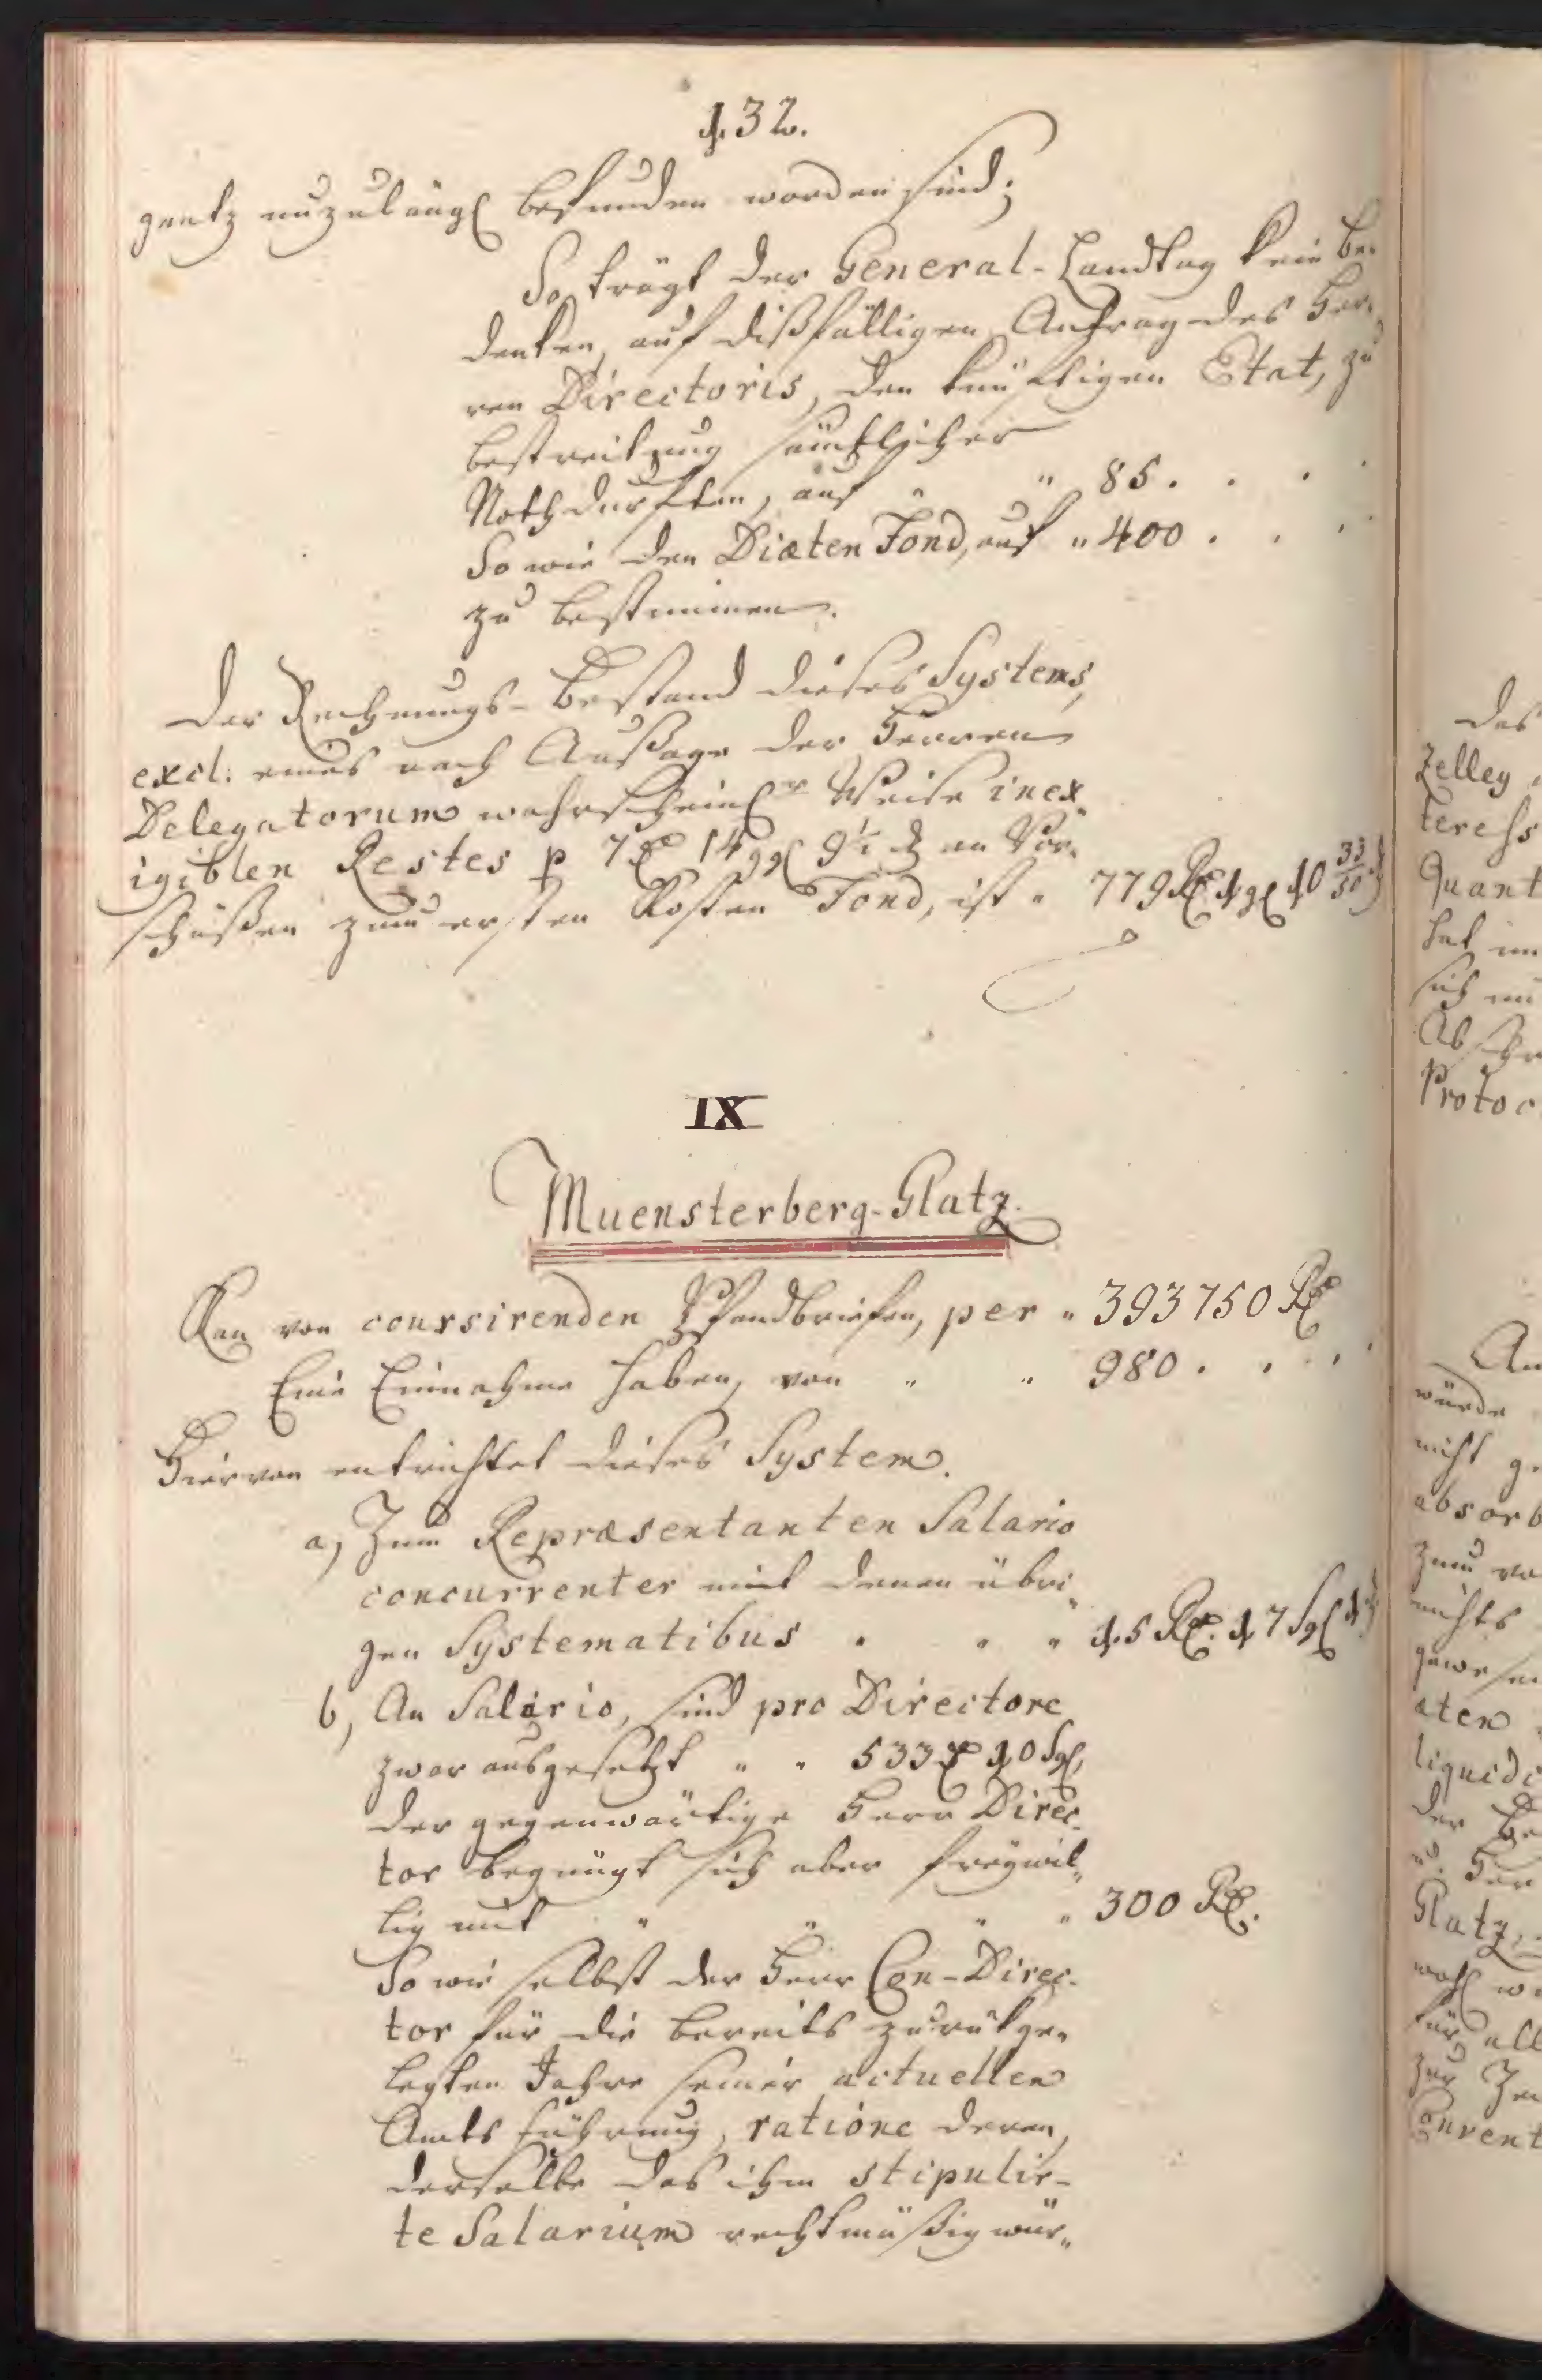 132.
gantz unzulängl befunden worden sind;
So trägt der General-Landtag kein Be„
denken, auf dißfälligen Antrag des Her„
ren Directoris, den künftigen Etat, zu
bestreitung sämtlicher
Nothdurften, auf " " 85. . . .
So wie den Diæten Fond, auf " 400 . . .
zu bestimmen.
Der Rechnungs-Bestand dieses Systems,
excl: eines nach Außage der Herren
Delegatorum wahrscheinl Weise inex„
igiblen Restes p 7 rl 14 ggl 9½ d an Vor„
schüßen zum ersten Kosten Fond, ist " 779 Rl 1 gl 10 33/50
IX
Muensterberg-Glatz.
Kan von coursirenden Pfandbriefen, per " 393750 Rl
Eine Einnahme haben, von " " 980 . . .
Hiervon entrichtet dieses System.
a, Zum Repræsentanten Salario
concurrenter mit denen übri„
gen Systematibus " " " 15 Rl. 17 Sgl
b, An Salario, sind pro Directore
zwar ausgesetzt " " 533 rl 10 Sgl,
der gegenwärtige Herr Direc„
tor begnügt sich aber freywil„
lig mit " " " " 300 Rl.
So wie selbst der Herr Con-Direc-
tor für die bereits zurükge„
legten Jahre seiner actuellen
Amts führung, ratione deren,
derselbe das ihm stipulir-
te Salarium rechtmäßig wür„
Das
Zelley
teress
Quant
hat
sich
Absch
Protoc
An
würde
nicht
absorb
zum
nichts
gewesen
æten
liquidi
der
Glatz,
wohl
für all
zur
Convent